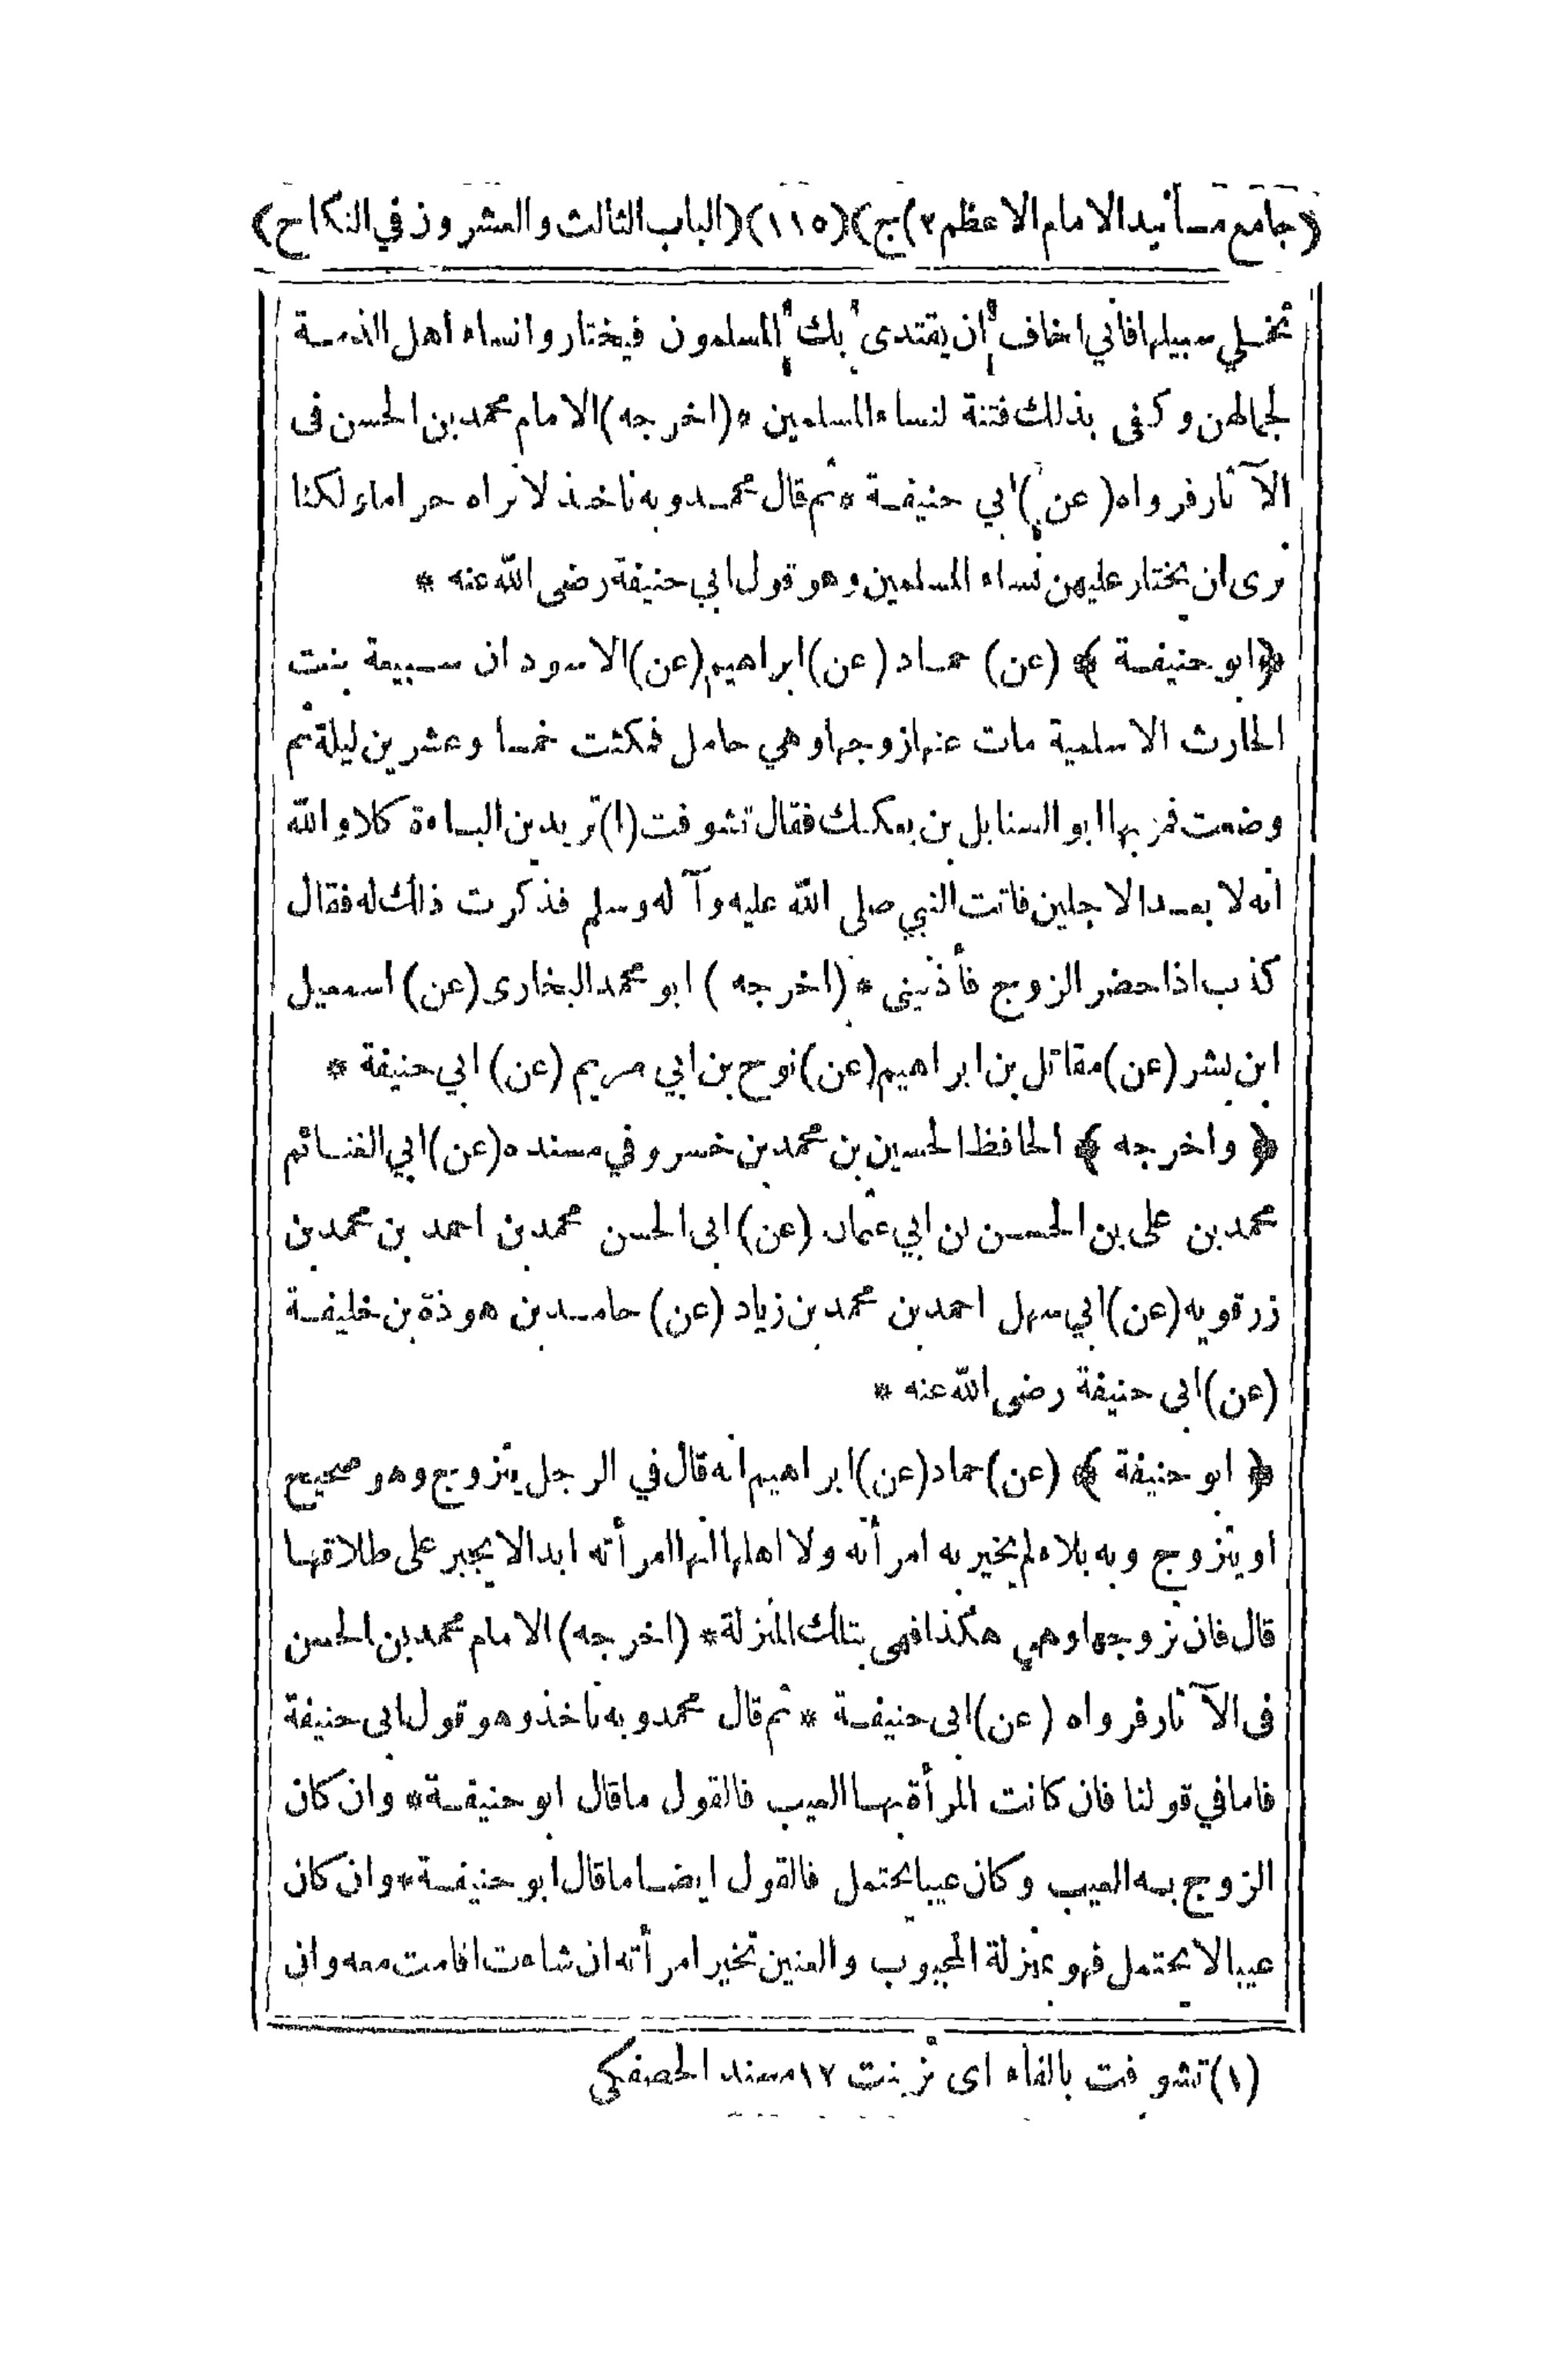 (جامع مسانيد الامام الاعظم ٢)ج)(١١٥)(الباب الثالث والعشرون في النكاح)
تخلي سبيلها فاني اخاف ان يقتدى بك المسلمون فيختار وانساء اهل الذمة
لجمالهن وكفى بذلك فتنة لنساء المسلمين * (اخرجه) الامام محمد بن الحسن فى
الآثار فرواه (عن) ابي حنيفة * ثم قال محمد وبه ناخذ لا نراه حراما ولكنا
نرى ان يختار عليهن نساء المسلمين وهو قول ابي حنيفة رضى الله عنه *
﴿ ابو حنيفة ﴾ (عن) حماد (عن) ابراهيم (عن) الاسود ان سبيعة بنت
الحارث الاسلمية مات عنها زوجها وهي حامل فمكثت خمسا وعشرين ليلة ثم
وضعت فمر بها ابو السنابل بن بعكك فقال تشوفت (١) تريدين الباءة كلا والله
انه لا بعد الاجلين فاتت النبي صلى الله عليه وآله وسلم فذكرت ذلك له فقال
كذب اذا حضر الزوج فأذنينى * (اخرجه) ابو محمد البخارى (عن) اسمعيل
ابن بشر (عن) مقاتل بن ابراهيم (عن) نوح بن ابي مريم (عن) ابي حنيفة *
﴿ واخرجه ﴾ الحافظ الحسين بن محمد بن خسرو في مسنده (عن) ابي الغنائم
محمد بن على بن الحسن بن ابي عثمان (عن) ابى الحسن محمد بن احمد بن محمد بن
زرقويه (عن) ابي سهل احمد بن محمد بن زياد (عن) حامد بن هوذة بن خليفة
(عن) ابى حنيفة رضى الله عنه *
﴿ ابو حنيفة ﴾ (عن) حماد (عن) ابراهيم انه قال في الرجل يتزوج وهو صحيح
او يتزوج وبه بلاء لم يخبر به امرأته ولا اهلها انها امرأته ابدا لا يجبر على طلاقها
قال فان تزوجها وهي هكذا فهى بتلك المنزلة * (اخرجه) الامام محمد بن الحسن
فى الآثار فرواه (عن) ابى حنيفة * ثم قال محمد وبه ناخذ وهو قول ابى حنيفة
فاما في قولنا فان كانت المرأة بها العيب فالقول ما قال ابو حنيفة * وان كان
الزوج به العيب وكان عيبا يحتمل فالقول ايضا ما قال ابو حنيفة * وان كان
عيبا لا يحتمل فهو بمنزلة المجبوب والعنين تخير امرأته ان شاءت اقامت معه وان
(١) تشوفت بالفاء اى تزينت ١٧ مسند الحصفكي